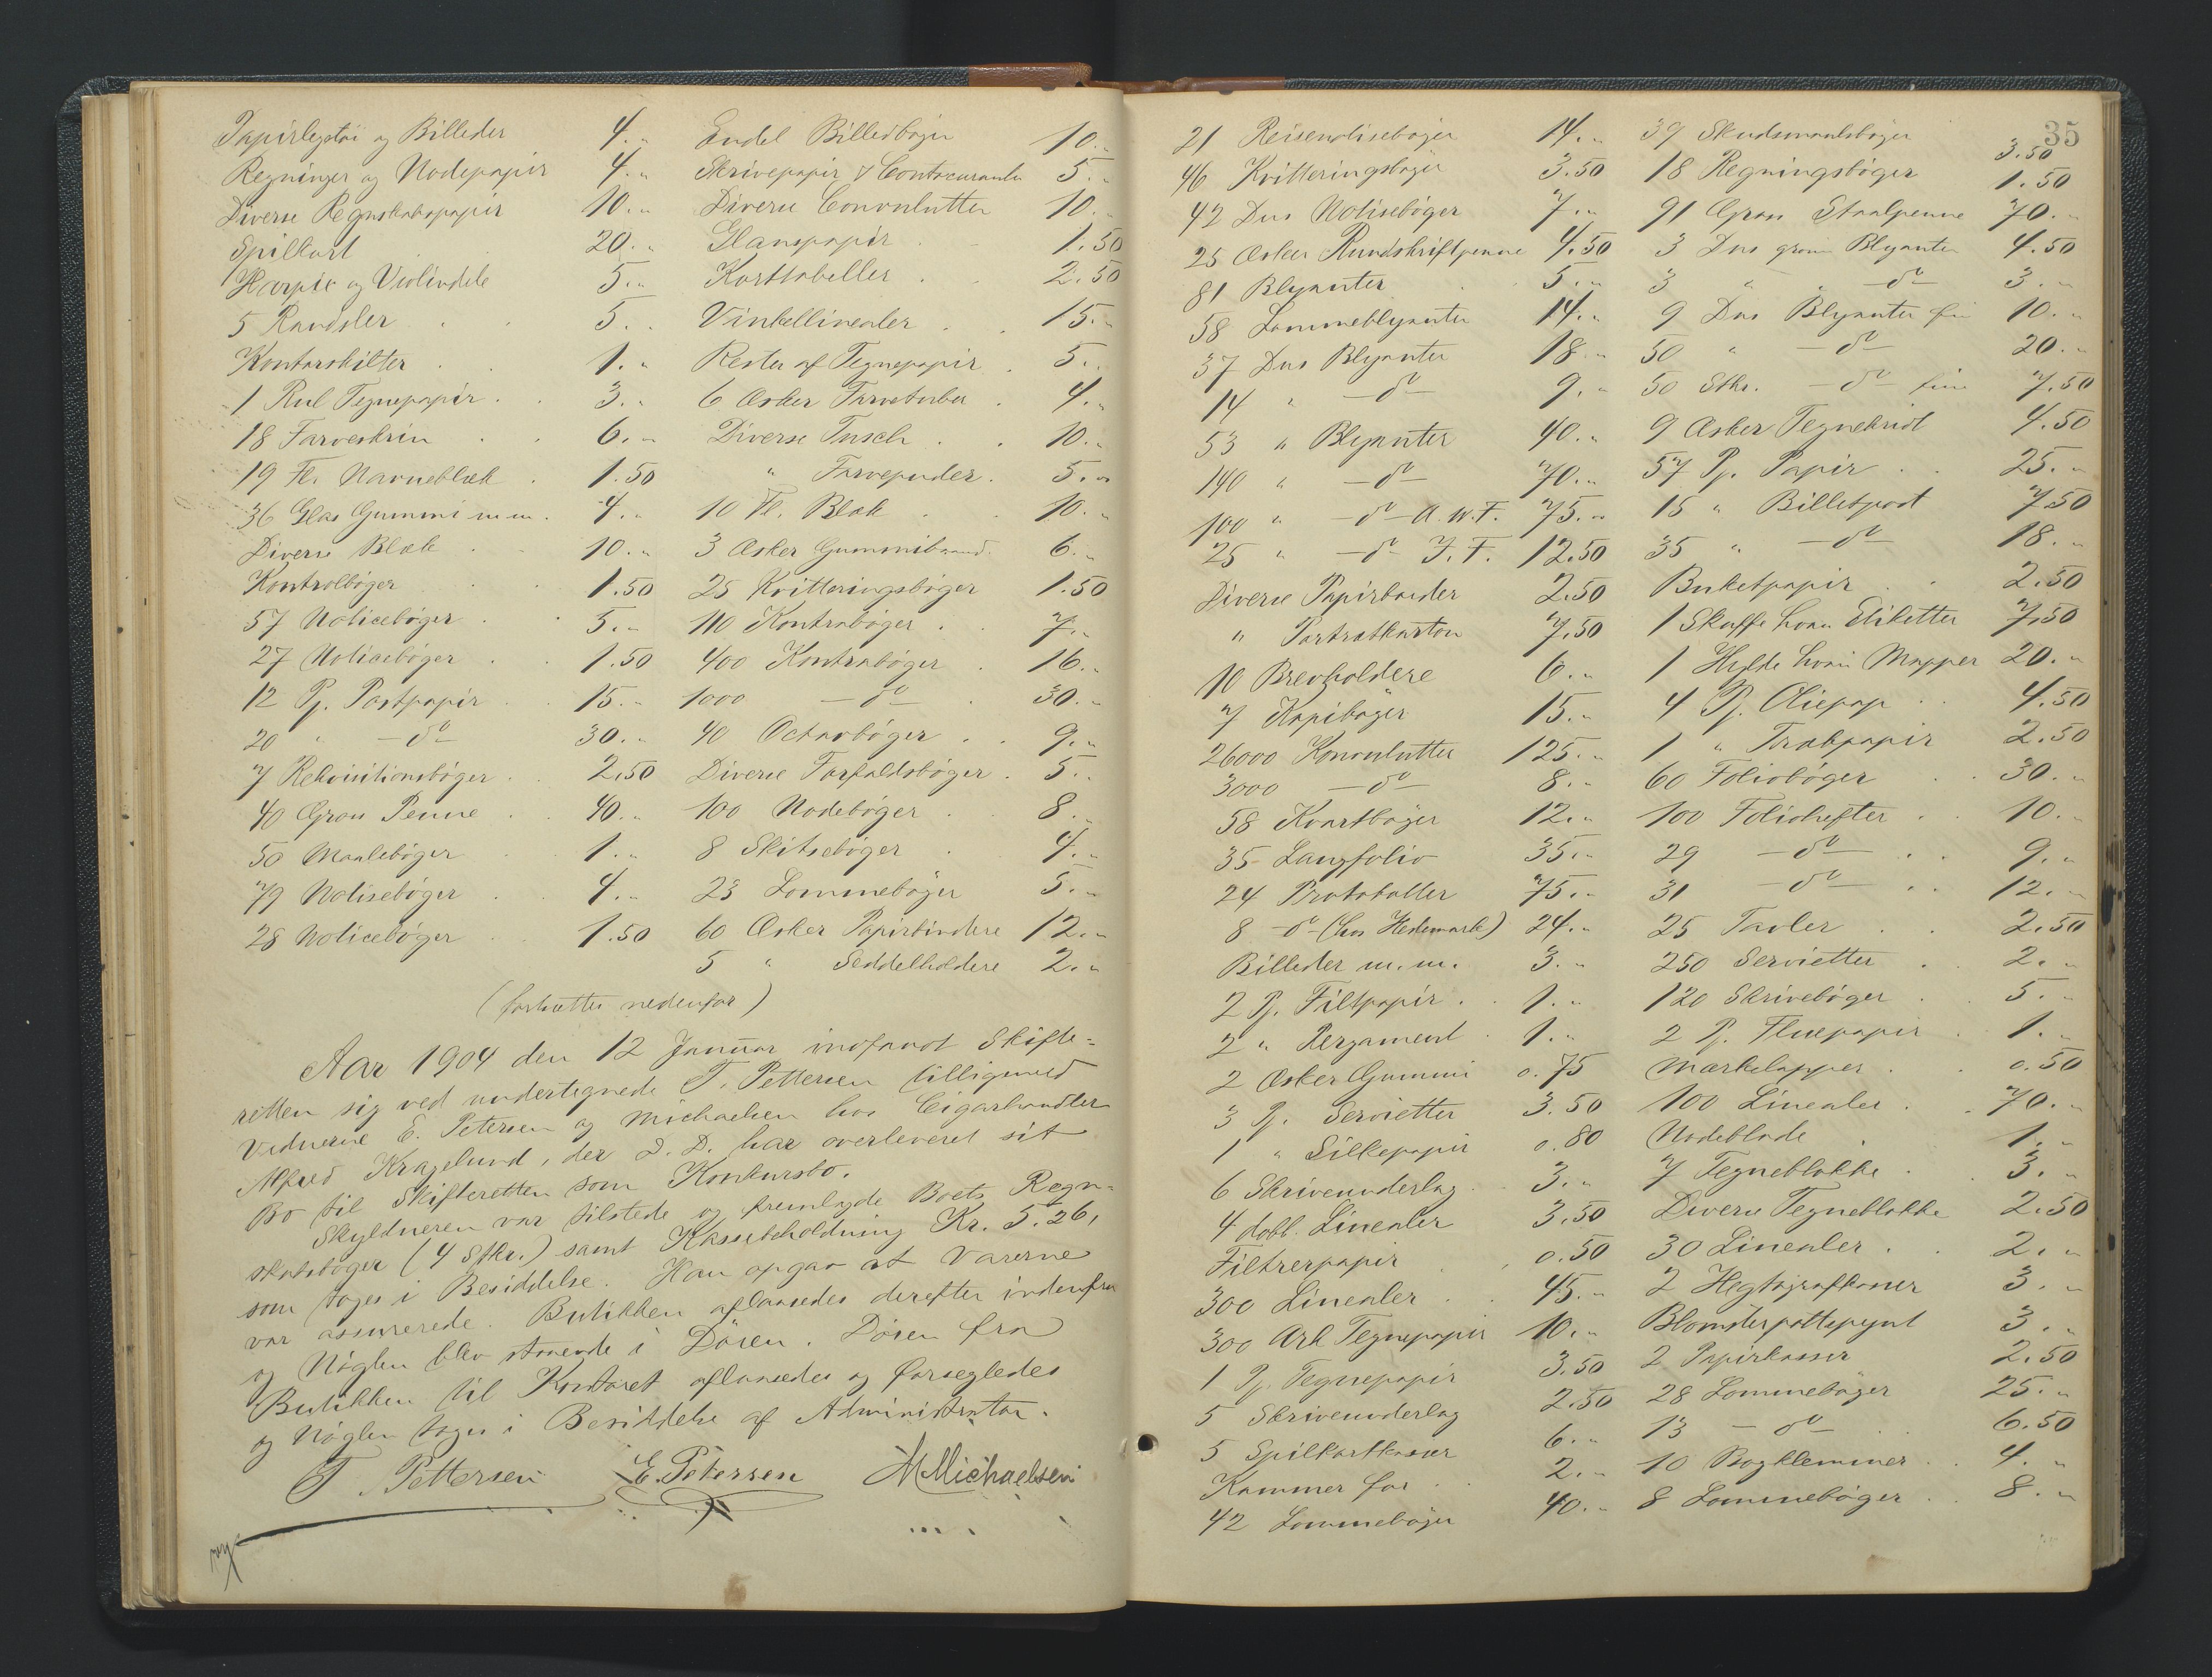 Papirlegetøi og Billeder 4.„
Regninger og Nodepapir 4.„
Diverse Regnskabspapir 10.„
Spilkort 20.„
Harpix og Violindele 5.„
5 Randsler 5.„
Kontorskilter 1.„
1 Rul Tegnepapir 3.„
18 Farveskrin 6.„
19 Fl. Navneblæk 1.50
36 Glas Gummi m.m. 4.„
Diverse Blæk 10.„
Kontrolbøger 1.50
57 Noticebøger 5.„
27 Noticebøger 1.50
12 Pj. Postpapir 15.„
20 „ – dº – 30.„
7 Rekvisitionsbøger 2.50
40 Gros Penne 40.„
50 Maalebøger 1.„
79 Notisebøger 4.„
28 Noticebøger 1.50
Endel Billedbøger 10.„
Skrivepapir & 5.„
Diverse Convolutter 10.„
Glanspapir 1.50
Korttabeller 2.50
Vinkellinealer 15.„
Rester af Tegnepapir 5.„
6 Æsker Farvetuber 4.„
Diverse Tusch 10.„
„ Farvepuder 5.„
10 Fl. Blæk 10.„
3 Æsker Gummibaand 6.„
25 Kvitteringsbøger 1.50
110 Kontrabøger 7.„
400 Kontrabøger 16.„
1000 – dº – 30.„
40 Octavbøger 9.„
Diverse Forfaldsbøger 5.„
100 Nodebøger 8.„
8 Skitsebøger 4.„
23 Lommebøger 5.„
60 Æsker Papirbindere 12.„
5 „ Seddelholdere 2.„
(fortsættes nedenfor)
Aar 1904 den 12 Januar indfandt Skifte=
retten sig ved undertegnede T. Pettersen tilligemed
Vidnerne E. Petersen og Michaelsen hos Cigarhandler
Alfred Kragelund, der D. D. har overleveret sit
Bo til Skifteretten som Konkursbo.
Skyldneren var tilstede og fremlagde Boets Regn=
skabsbøger (4 Stkr.) samt Kassebeholdning Kr. 5.26,
som toges i Besiddelse. Han opgav at Varerne
var assurerede. Butikken aflaasedes derefter indenfra
og Nøglen blev staaende i Døren. Døren fra
Butikken til Kontoret aflaasedes og forsegledes
og Nøglen toges i Besiddelse af Administrator.
T Pettersen E. Petersen M Michaelsen
35
21 Reisenotisebøger 14.„
46 Kvitteringsbøger 3.50
42 Dus Notisebøger 7.„
25 Æsker Rundskriftpenne 4.50
81 Blyanter 5.„
58 Lommeblyanter 14.„
37 Dus Blyanter 18.„
14 „ – dº – 9.„
53 „ Blyanter 40.„
140 „ – dº – 70.„
100 „ – dº – A.W.F. 75.„
25 „ – dº – J.F. 12.50
Diverse Papirborder 2.50
„ Portrætkarton 7.50
10 Brevholdere 6.„
7 Kopibøger 15.„
26000 Konvolutter 125.„
3000 – dº – 8.„
58 Kvartbøger 12.„
35 Langfolio 35.„
24 Protokoller 75.„
8 – dº – (hos Hedemark) 24.„
Billeder m.m. 3.„
2 Pj. Filtpapir 1.„
2 „ Pergament 1.„
2 Æsker Gummi 0.75
3 Pj. Servietter 3.50
1 „ Silkepapir 0.80
6 Skriveunderlag 3.„
4 dobl. Linealer 3.50
Filtrerpapir 0.50
300 Linealer 45.„
300 Ark Tegnepapir 10.„
1 Pj. Tegnepapir 3.50
5 Skriveunderlag 2.50
5 Spilkortkasser 6.„
Kammer for 2.„
42 Lommebøger 40.„
39 Skudsmaalsbøger 3.50
18 Regningsbøger 1.50
91 Gros Staalpenne 70.„
3 Dus grønne Blyanter 4.50
3 „ „ – dº – 3.„
9 Dus Blyanter fin 10.„
50 „ – dº – 20.„
50 Stkr. – dº – fine 7.50
9 Æsker Tegnekridt 4.50
57 Pj. Papir 25.„
15 „ Billetpost 7.50
35 „ – dº – 18.„
Buketpapir 2.50
1 Skuffe hvori Etiketter 7.50
1 Hylde hvori Mapper 20.„
4 Pj. Oliepap 4.50
1 „ Trækpapir 2.50
60 Foliobøger 30.„
100 Foliohefter 10.„
29 – dº – 9.„
31 – dº – 12.„
25 Tavler 2.50
250 Servietter 2.„
120 Skrivebøger 5.„
2 Pj. Fluepapir 1.„
Mærkelapper 0.50
100 Linealer 70.„
Nodeblade 1.„
7 Tegneblokke 3.„
Diverse Tegneblokke 2.50
30 Linealer 2.„
2 Hegtografkasser 3.„
Blomsterpottepynt 3.„
2 Papirkasser 2.50
28 Lommebøger 25.„
13 – dº – 6.50
10 Bogklemmer 4.„
8 Lommebøger 8.„